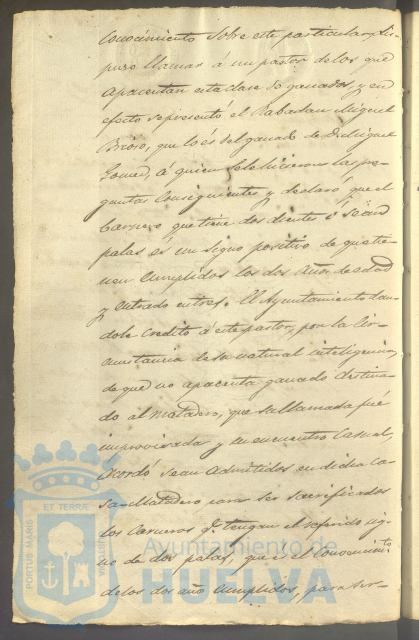 conocimiento sobre este particular, dis-
puso llamar á un pastor de los que
apacentan esta clase de ganados, y en
efecto se presentó el Rabadan Miguel
Brioso, que lo és del ganado de D. Miguel
Gomez, á quien se le hicieron las pre-
guntas consiguientes y declaró que el
Carnero que tiene dos dientes ó sean
palas és un signo positivo de que tie-
nen cumplidos los dos años de edad
y entrado en tres. El Ayuntamiento dan-
dole credito á este pastor, por la cir-
cunstancia de su natural inteligencia,
de que no apacenta ganado destina-
do al matadero, que su llamada fué
improvisada y su encuentro casual,
Acordó sean admitidos en dicha ca-
sa-Matadero para ser sacrificados
los Carneros q.e tengan el referido sig-
no de dos palas, que es el conocimiento
de los dos año cumplidos, para ser-
PORTUS MARIS
ET TERRÆ
CUSTODIA
Ayuntamiento de
HUELVA